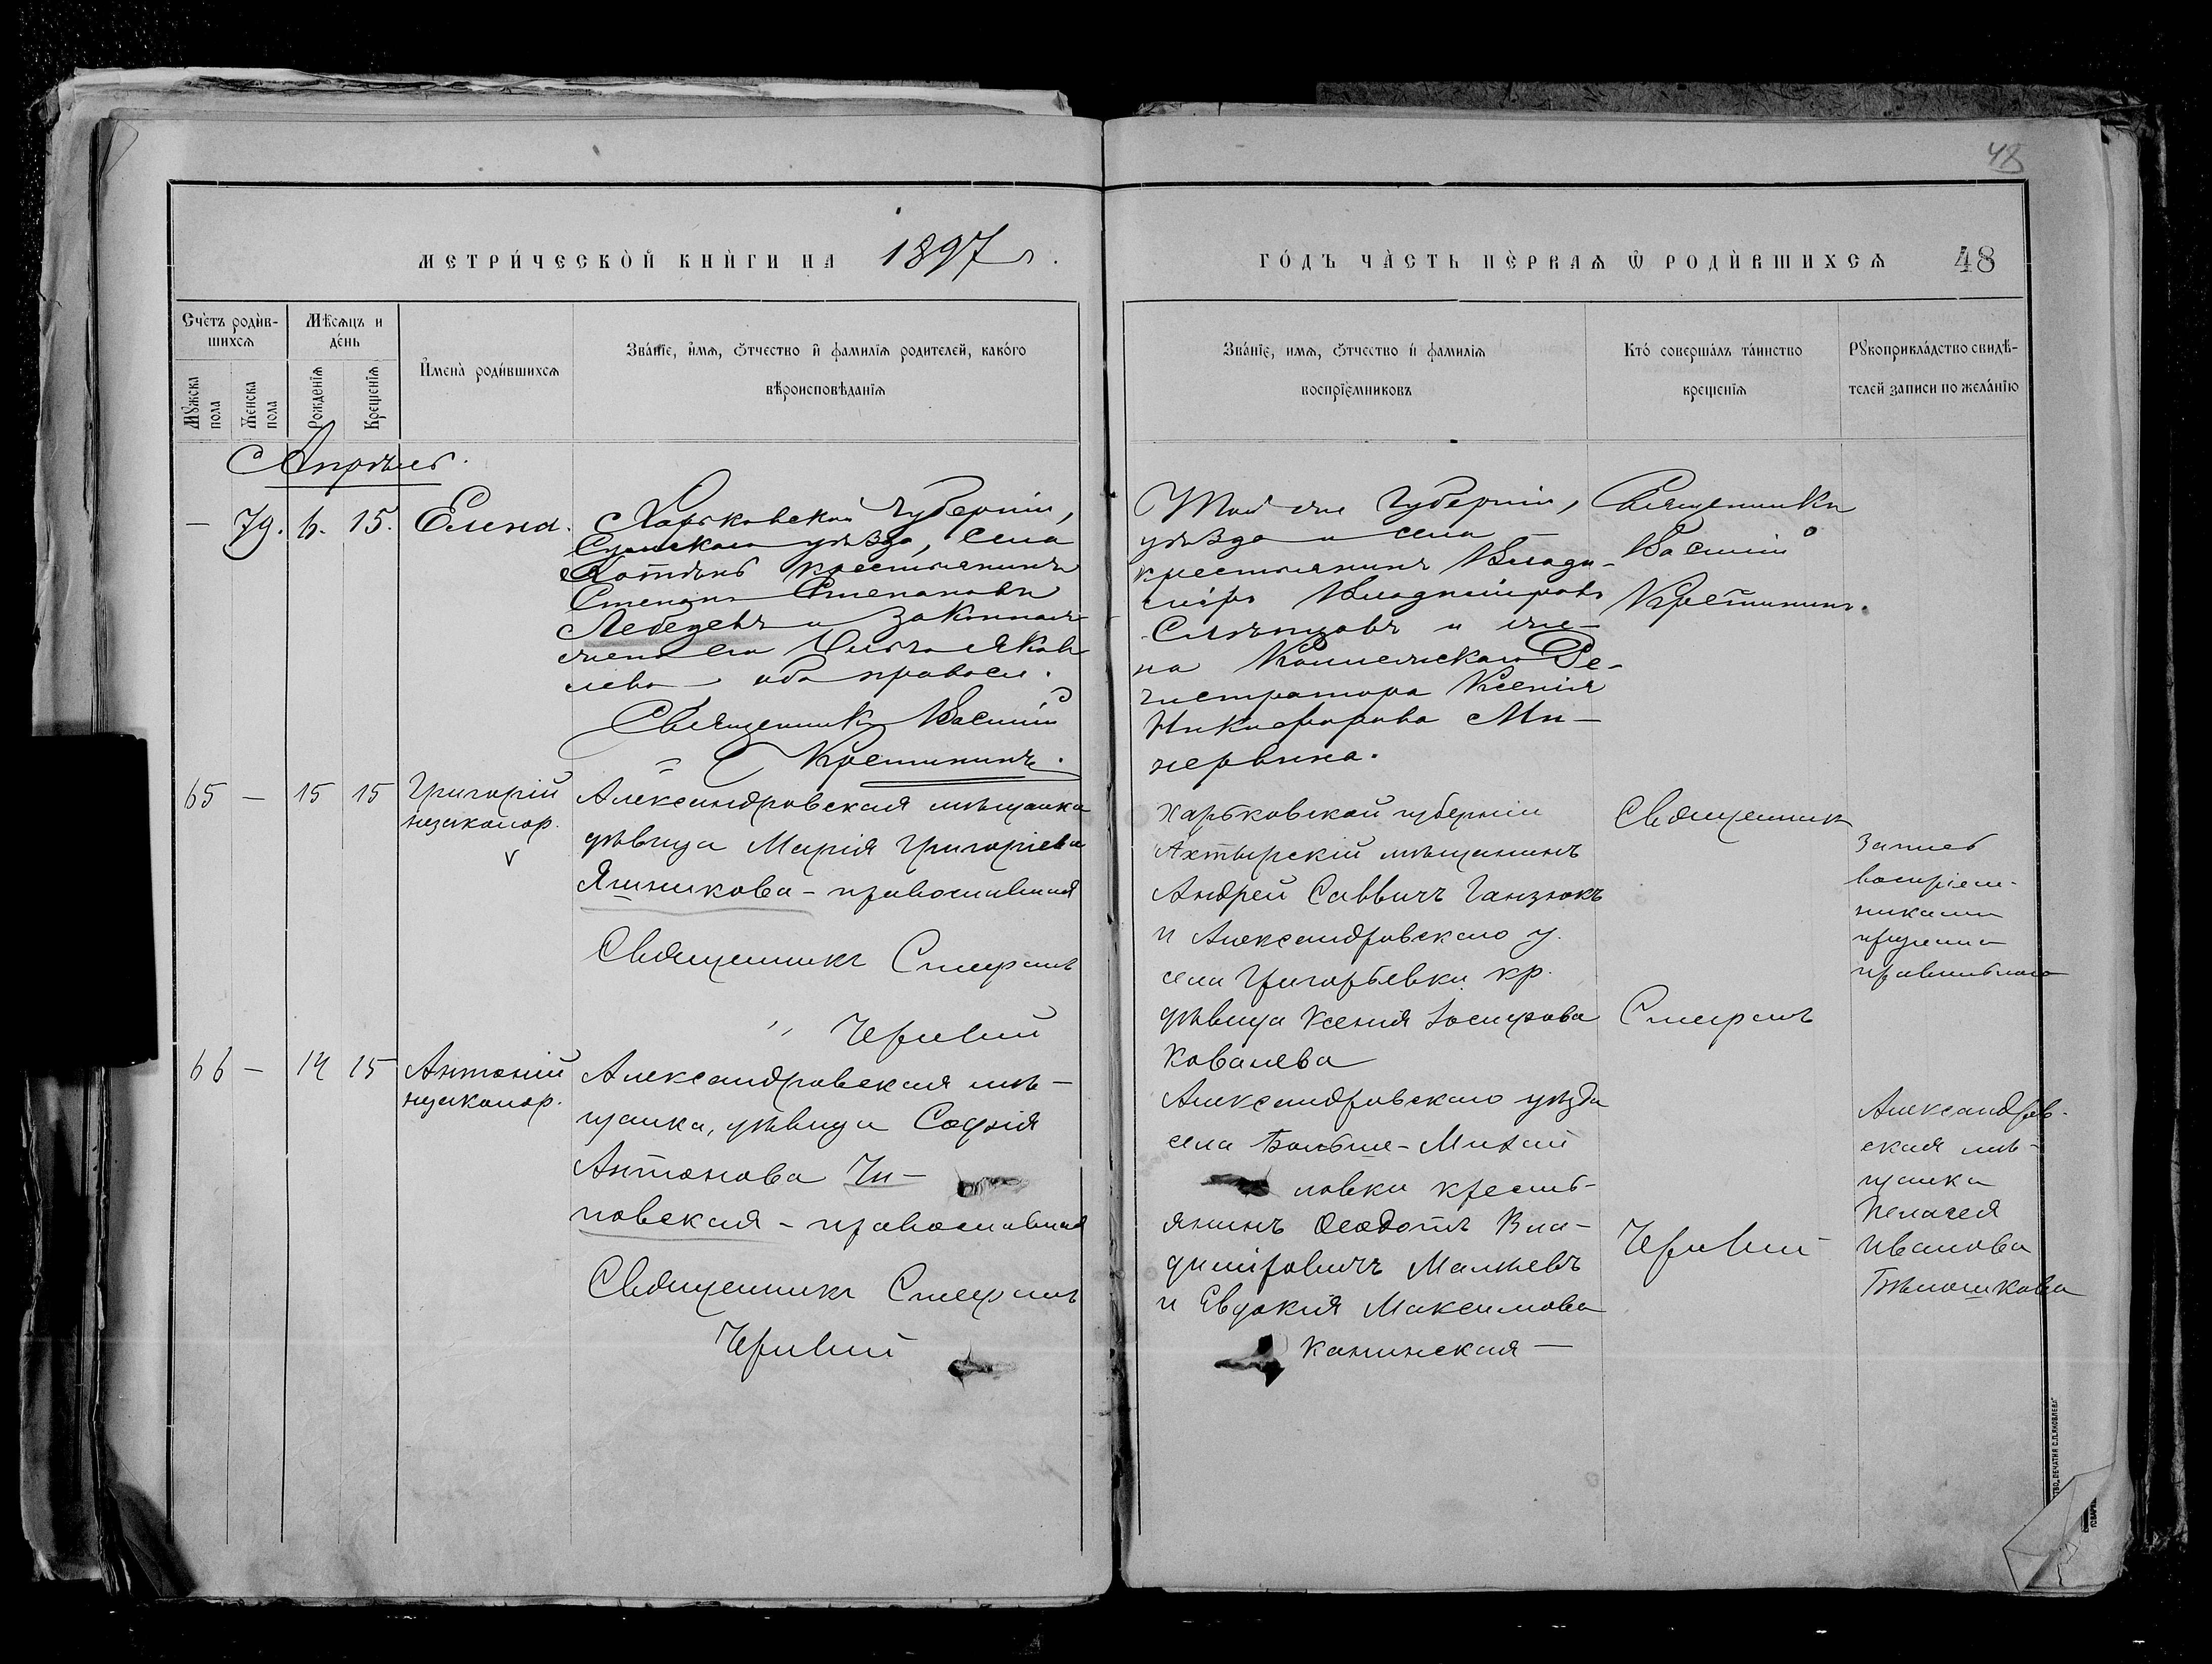 48
МЕТРИ́ЧЕСКОЙ КНИ́ГИ НА 1897 г.
ГО́ДЪ ЧА́СТЬ ПЕ́РВАѦ Ѡ РОДИ́ВШИХСѦ 48
Сче́тъ роди́в-
шихсѧ
Мѣ́сѧцъ и
де́нь
Мꙋ́жска
пола
Же́нска
пола
Рожде́нїѧ
Креще́нїѧ
И҆мена̀ роди́вшихсѧ
Зва́нїе, и҆́мѧ, ѻ҆́тчество и҆ фами́лїѧ родителей, како́го
вѣроисповѣ́данїѧ
Зва́нїе, имѧ, ѻ҆́тчество и҆ фами́лїѧ
воспрїе́мниковъ
Кто́ соверша́лъ та́инство
креще́нїѧ
Рꙋкоприкла́дство свидѣ́-
телей записи по жела́нїю
Апрѣль.
— 79. 6. 15. Елена.
Харьковской губерніи,
Сумскаго уѣзда, села
крестьянинъ
Степанъ Степановъ
Лебедевъ и законная
жена его Ольга Яков
лева, оба правосл.
Священникъ Василій
Крештининъ.
Той же губерніи,
уѣзда и села —
крестьянинъ Влади-
міръ Владиміровъ
Слѣпцовъ и же-
на Коллежскаго Ре-
гистратора Ксенія
Никифорова Ми-
нервина.
Священникъ
Василій
Крештининъ.
65 — 15 15 Григорій
незаконор.
Александровская мѣщанка
дѣвица Марія Григоріева
Яшникова - православная
Священникъ Стефанъ
" Чернвый
Харьковской губерніи
Ахтырскій мѣщанинъ
Андрей Саввичъ Ганзюкъ
и Александровскаго у.
села Григорьевки кр.
дѣвица Ксенія Іосифова
Ковалева
Священникъ
Стефанъ
Запись
воспріем-
никами
правильною
66 — 14 15 Антоній
незаконор.
Александровская мѣ-
щанка, дѣвица Софія
Антонова Чи-
повская - православная
Священникъ Стефанъ
Александровскаго уѣзда
села Больше-Михай
ловки кресть-
янинъ Ѳеодотъ Вла-
диміровичъ
и Евдокія Максимова
Канинская —
Александров-
ская мѣ-
щанка
Пелагея
Иванова
Бѣлошкова